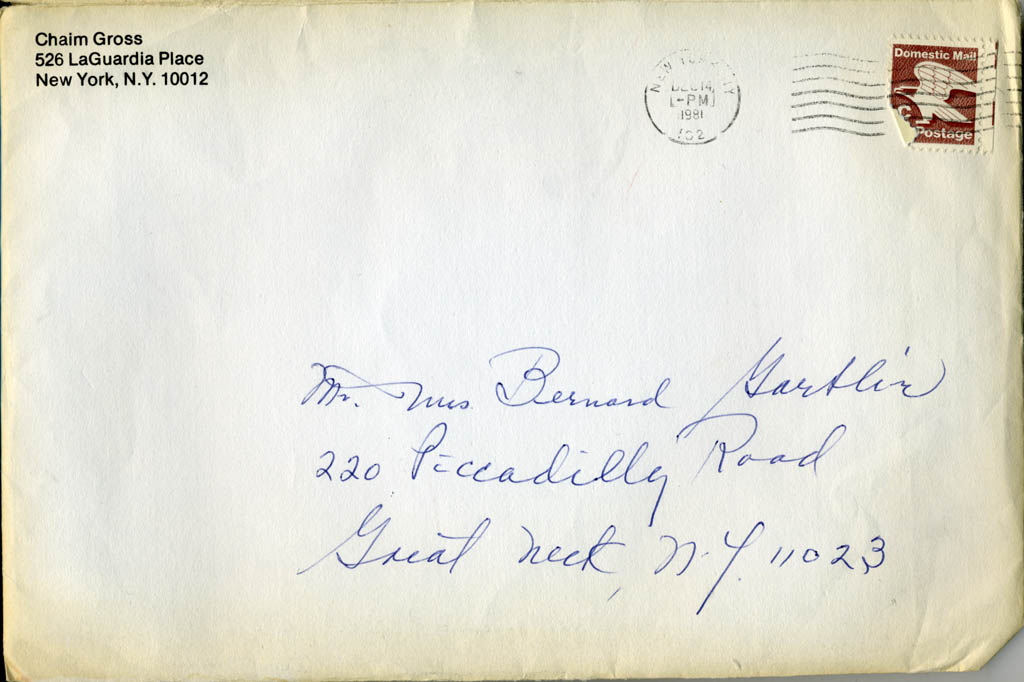 Chaim Gross
526 LaGuardia Place
New York, N.Y. 10012
NEW YORK, NY
DEC 14
-PM
1981
102
Domestic Mail
C
Postage
Mr. Mrs Bernard
220 Piccadilly Road
Great Neck, N.Y. 11023